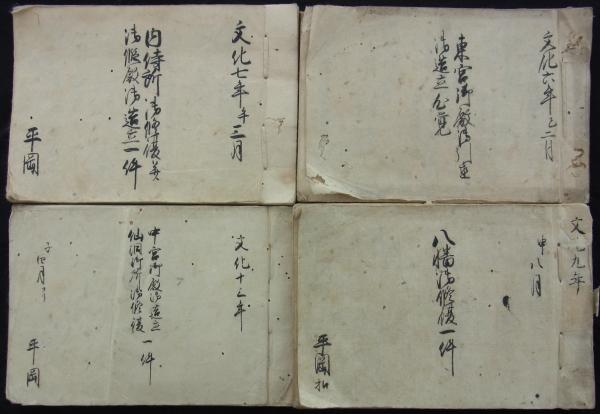 文化六年巳二月
東宮御殿御引直
御造立心覚
文化七年午三月
内侍所御修復并
御假殿御造立一件
平岡
文化九年
申八月
八幡御修復一件
平岡扣
文化十三年
中宮御殿御造立
仙洞御所御修復 一件
子四月ゟ
平岡